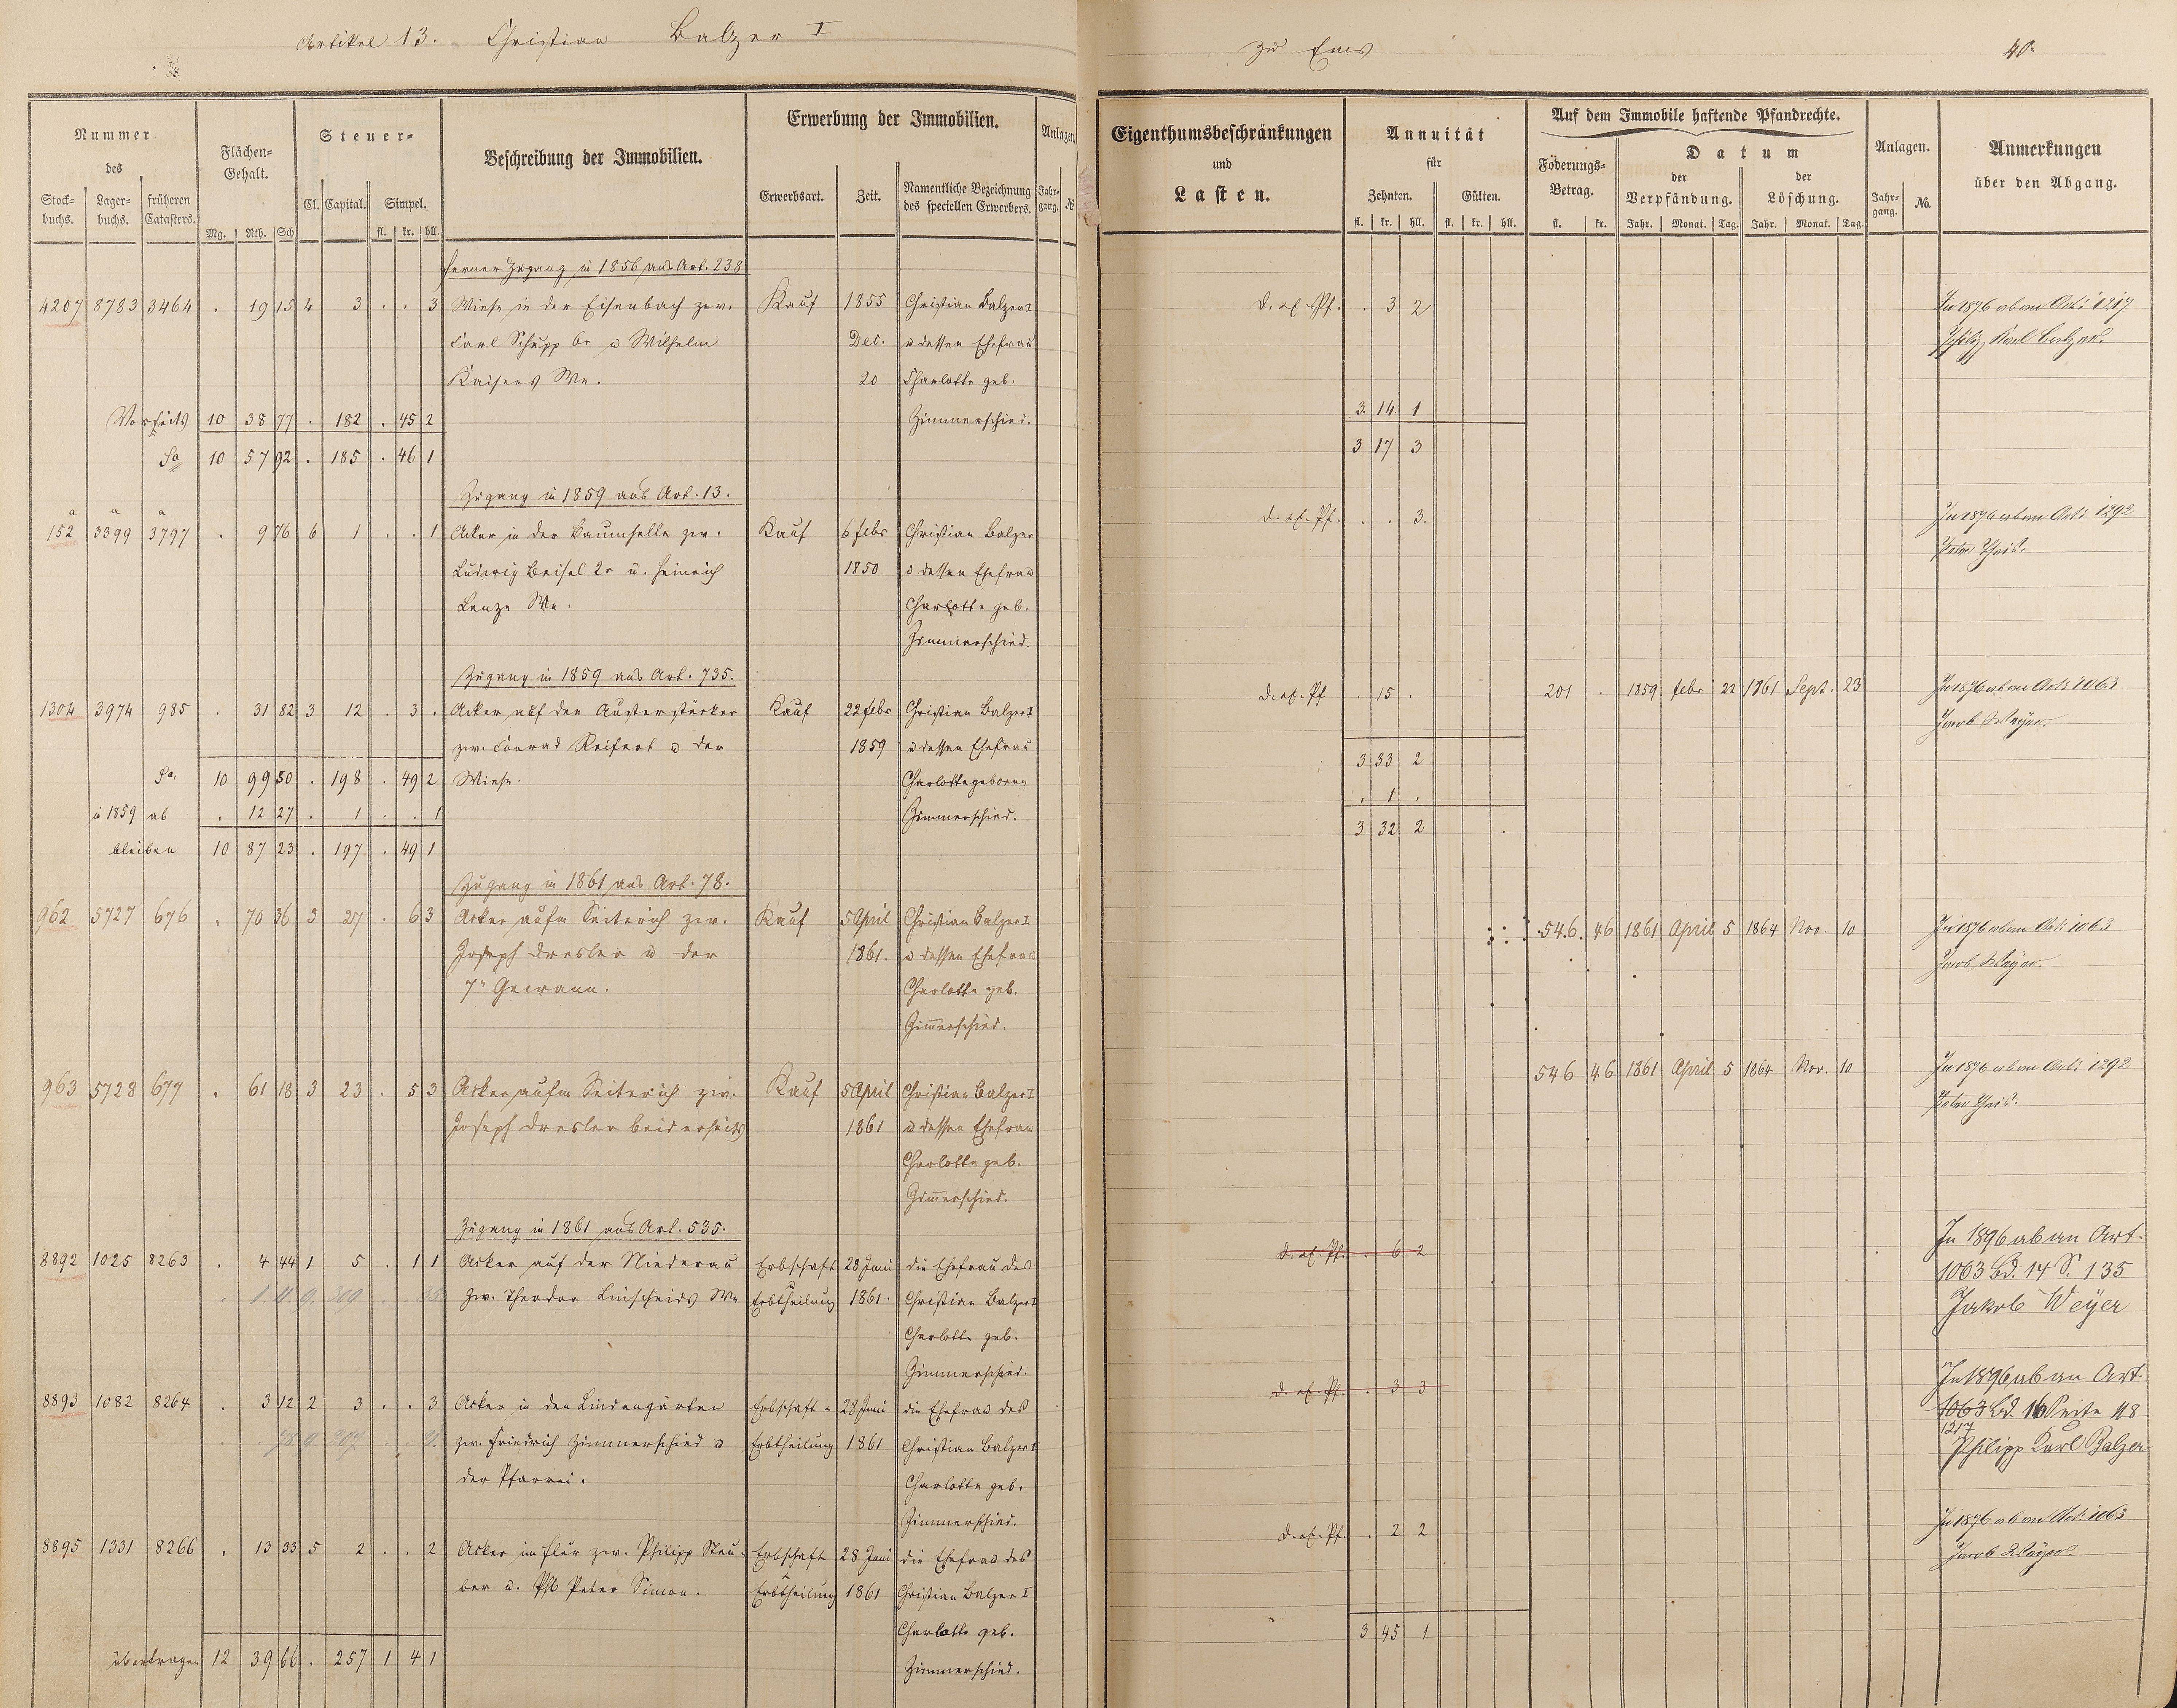 Artikel 13. Christian Balzer I
zu Ems
40.
Nummer
des
Stock-
buchs.
Lager-
buchs.
früheren
Catasters.
Flächen-
Gehalt.
Mg. Rth. Sch
Steuer-
Cl. Capital. Simpel.
fl. kr. hll.
Beschreibung der Immobilien.
Erwerbung der Immobilien.
Erwerbsart. Zeit.
Namentliche Bezeichnung
des speciellen Erwerbers.
Anlagen
Jahr-
gang. №
Eigenthumsbeschränkungen
und
Lasten.
Annuität
für
Zehnten. Gülten.
fl. kr. hll. fl. kr. hll.
Auf dem Immobile haftende Pfandrechte.
Föderungs-
Betrag.
fl. kr.
Datum
der
Verpfändung.
der
Löschung.
Jahr. Monat. Tag. Jahr. Monat. Tag.
Anlagen.
Jahr-
gang. No.
Anmerkungen
über den Abgang.
ferner Zugang in 1856 aus Art. 238
4207 8783 3464 . 19 15 4 3 . . 3 Wiese in der Eisenbach zw. Kauf 1855 Christian Balzer I d. ex. Pf. . 3 2 In 1876 ab an Art. 1217
Carl Schupp 6r u Wilhelm Dec. u dessen Ehefrau Philip Karl Balzer.
Kaisers We. 20 Charlotte geb.
Vorseits 10 38 77 . 182 . 45 2 Zimmerschied. 3. 14. 1
Sa 10 57 92 . 185 . 46 1 3 17 3
Zugang in 1859 aus Art. 13.
a a a
152 3399 3797 . 9 76 6 1 . . 1 Acker in der Baumhelle zw. Kauf 6 febr Christian Balzer d. ex. Pf. . . 3. In 1876 ab an Art. 1292
Ludwig Beisel 2r u. Heinrich 1850 u dessen Ehefrau Peter Theis.
Lenze We. Charlotte geb.
Zimmerschied.
Zugang in 1859 aus Art. 735.
1304 3974 985 . 31 82 3 12 . 3 . Acker auf den Austerstücker Kauf 22 febr Christian Balzer I d. ex. Pf . 15 . 201 . 1859. febr 22 1861 Sept. 23 In 1876 ab an Art. 1063
zw. Conrad Reifert u der 1859 u dessen Ehefrau Jacob Weyer.
Sa. 10 99 50 . 198 . 49 2 Wiese. Charlotte geborene 3 33 2
in 1859 ab . 12 27 . 1 . . 1 Zimmerschied. . 1 .
bleiben 10 87 23 . 197 . 49 1 3 32 2
Zugang in 1861 aus Art. 78.
962 5727 676 . 70 36 3 27 . 6 3 Acker aufm Seiterich zw. Kauf 5 April Christian Balzer I 546. 46 1861 April 5 1864 Nov. 10 In 1876 ab an Art. 1063
Joseph Dresler u der 1861. u dessen Ehefrau Jacob Weyer.
7n Gewann. Charlotte geb.
Zimerschied.
963 5728 677 . 61 18 3 23 . 5 3 Acker aufm Seiterich zw. Kauf 5 April Christian Balzer I 546 46 1861 April 5 1864 Nov. 10 In 1876 ab an Art. 1292
Joseph Dresler beiderseits 1861 u dessen Ehefrau Peter Theis.
Charlotte geb.
Zimerschied.
Zugang in 1861 aus Art. 535.
8892 1025 8263 . 4 44 1 5 . 1 1 Acker auf der Niederau Erbschaft 28 Juni die Ehefrau des d. ex. Pf. . 6 2 In 1896 ab an Art.
zw. Theodor Linscheids We Erbtheilung 1861. Christian Balzer I 1063 Bd. 14 S. 135
Charlotte geb. Jakob Weyer
Zimmerschied.
8893 1082 8264 . 3 12 2 3 . . 3 Acker in den Lindengärten Erbschaft u 28 Juni die Ehefrau des d. ex. Pf. . 3 3 In 1896 ab an Art.
zw. Friedrich Zimmerschied u Erbtheilung 1861 Christian Balzer I 1063 Bd. 16 Seite 48
der Pfarrei. Charlotte geb. 1217
Zimmerschied. Philipp Karl Balzer
8895 1331 8266 . 13 33 5 2 . . 2 Acker im flur zw. Philipp Steu- Erbschaft 28 Juni die Ehefrau des d. ex. Pf. . 2 2 In 1876 ab an Art. 1063
ber u. Phl Peter Simon. Erbtheilung 1861 Christian Balzer I Jacob Weyer.
Charlotte geb. 3 45 1
übertragen 12 39 66 . 257 1 4 1 Zimmerschied.